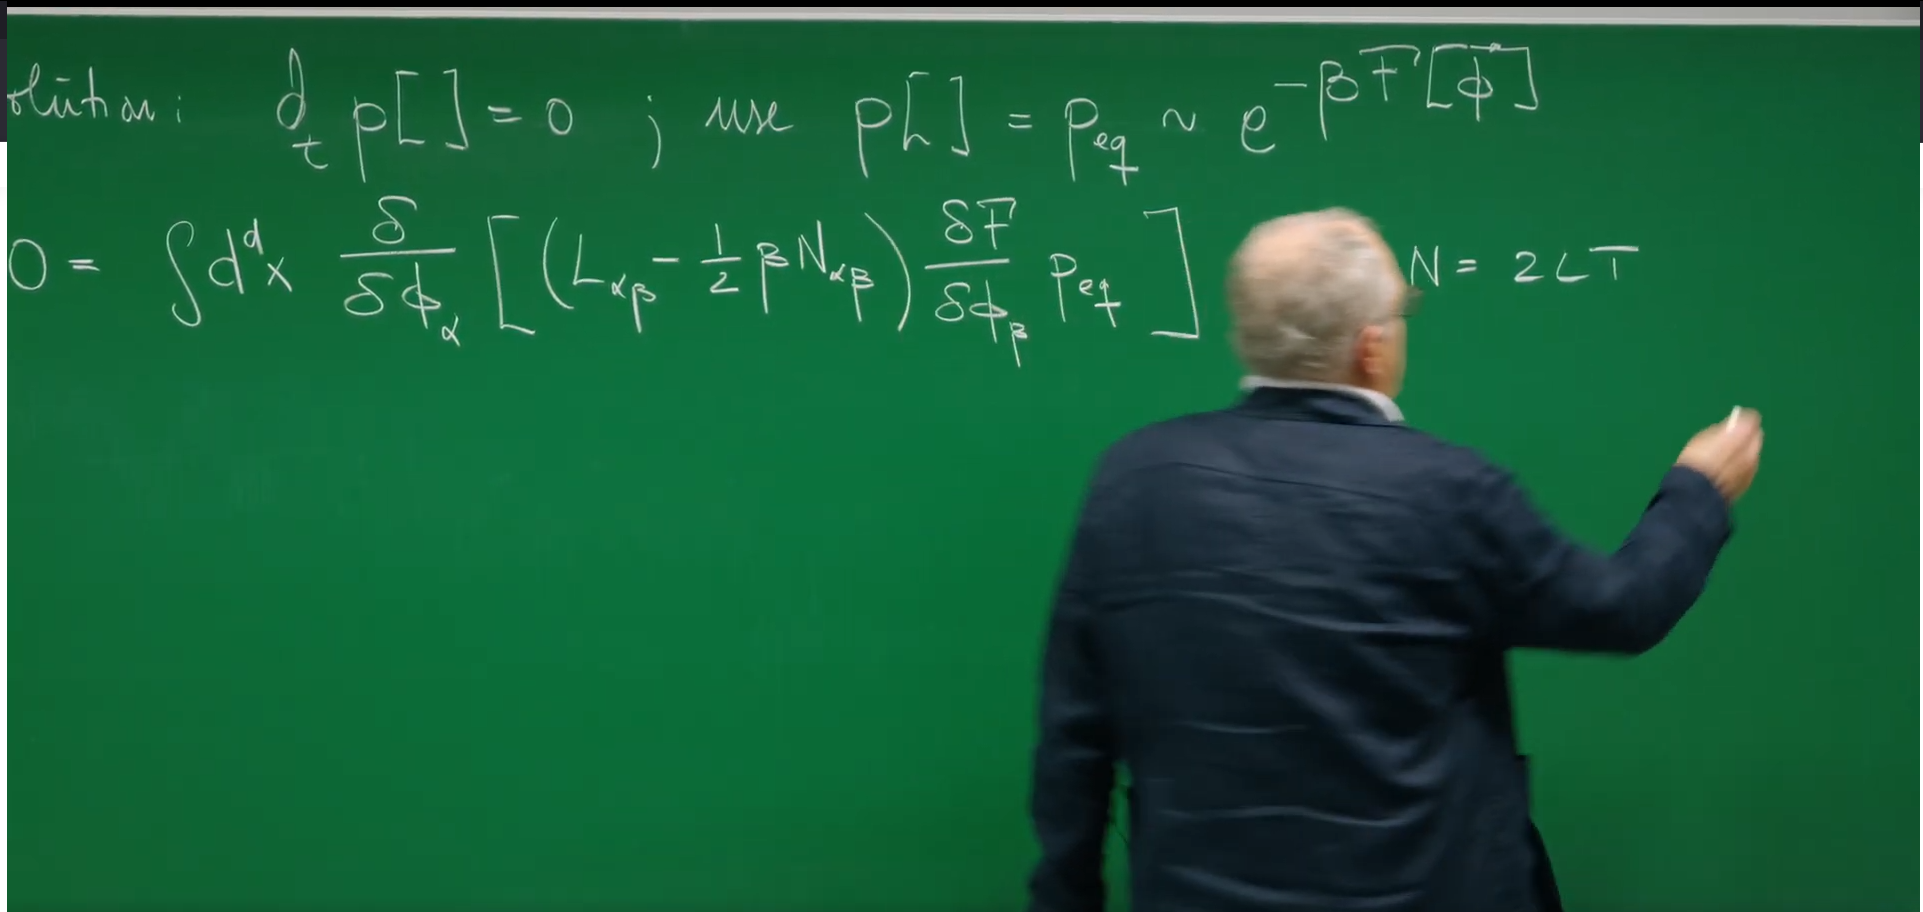 olution: ∂_t p[ ] = 0 ; use p[ ] = p_eq ~ e^{-βF[ϕ⃗]}
0 = ∫d^d x δ/δϕ_α [(L_αβ - 1/2 βN_αβ) δF/δϕ_β p_eq] N = 2LT